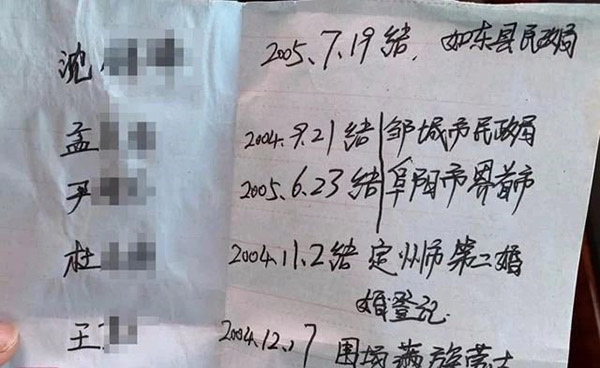 沈 2005.7.19结, 如东县民政局
孟 2004.9.21结 邹城市民政局
尹 2005.6.23结 阜阳市界首市
杜 2004.11.2结 定州市第二婚
婚登记
王 2004.12.17
围场满族蒙古